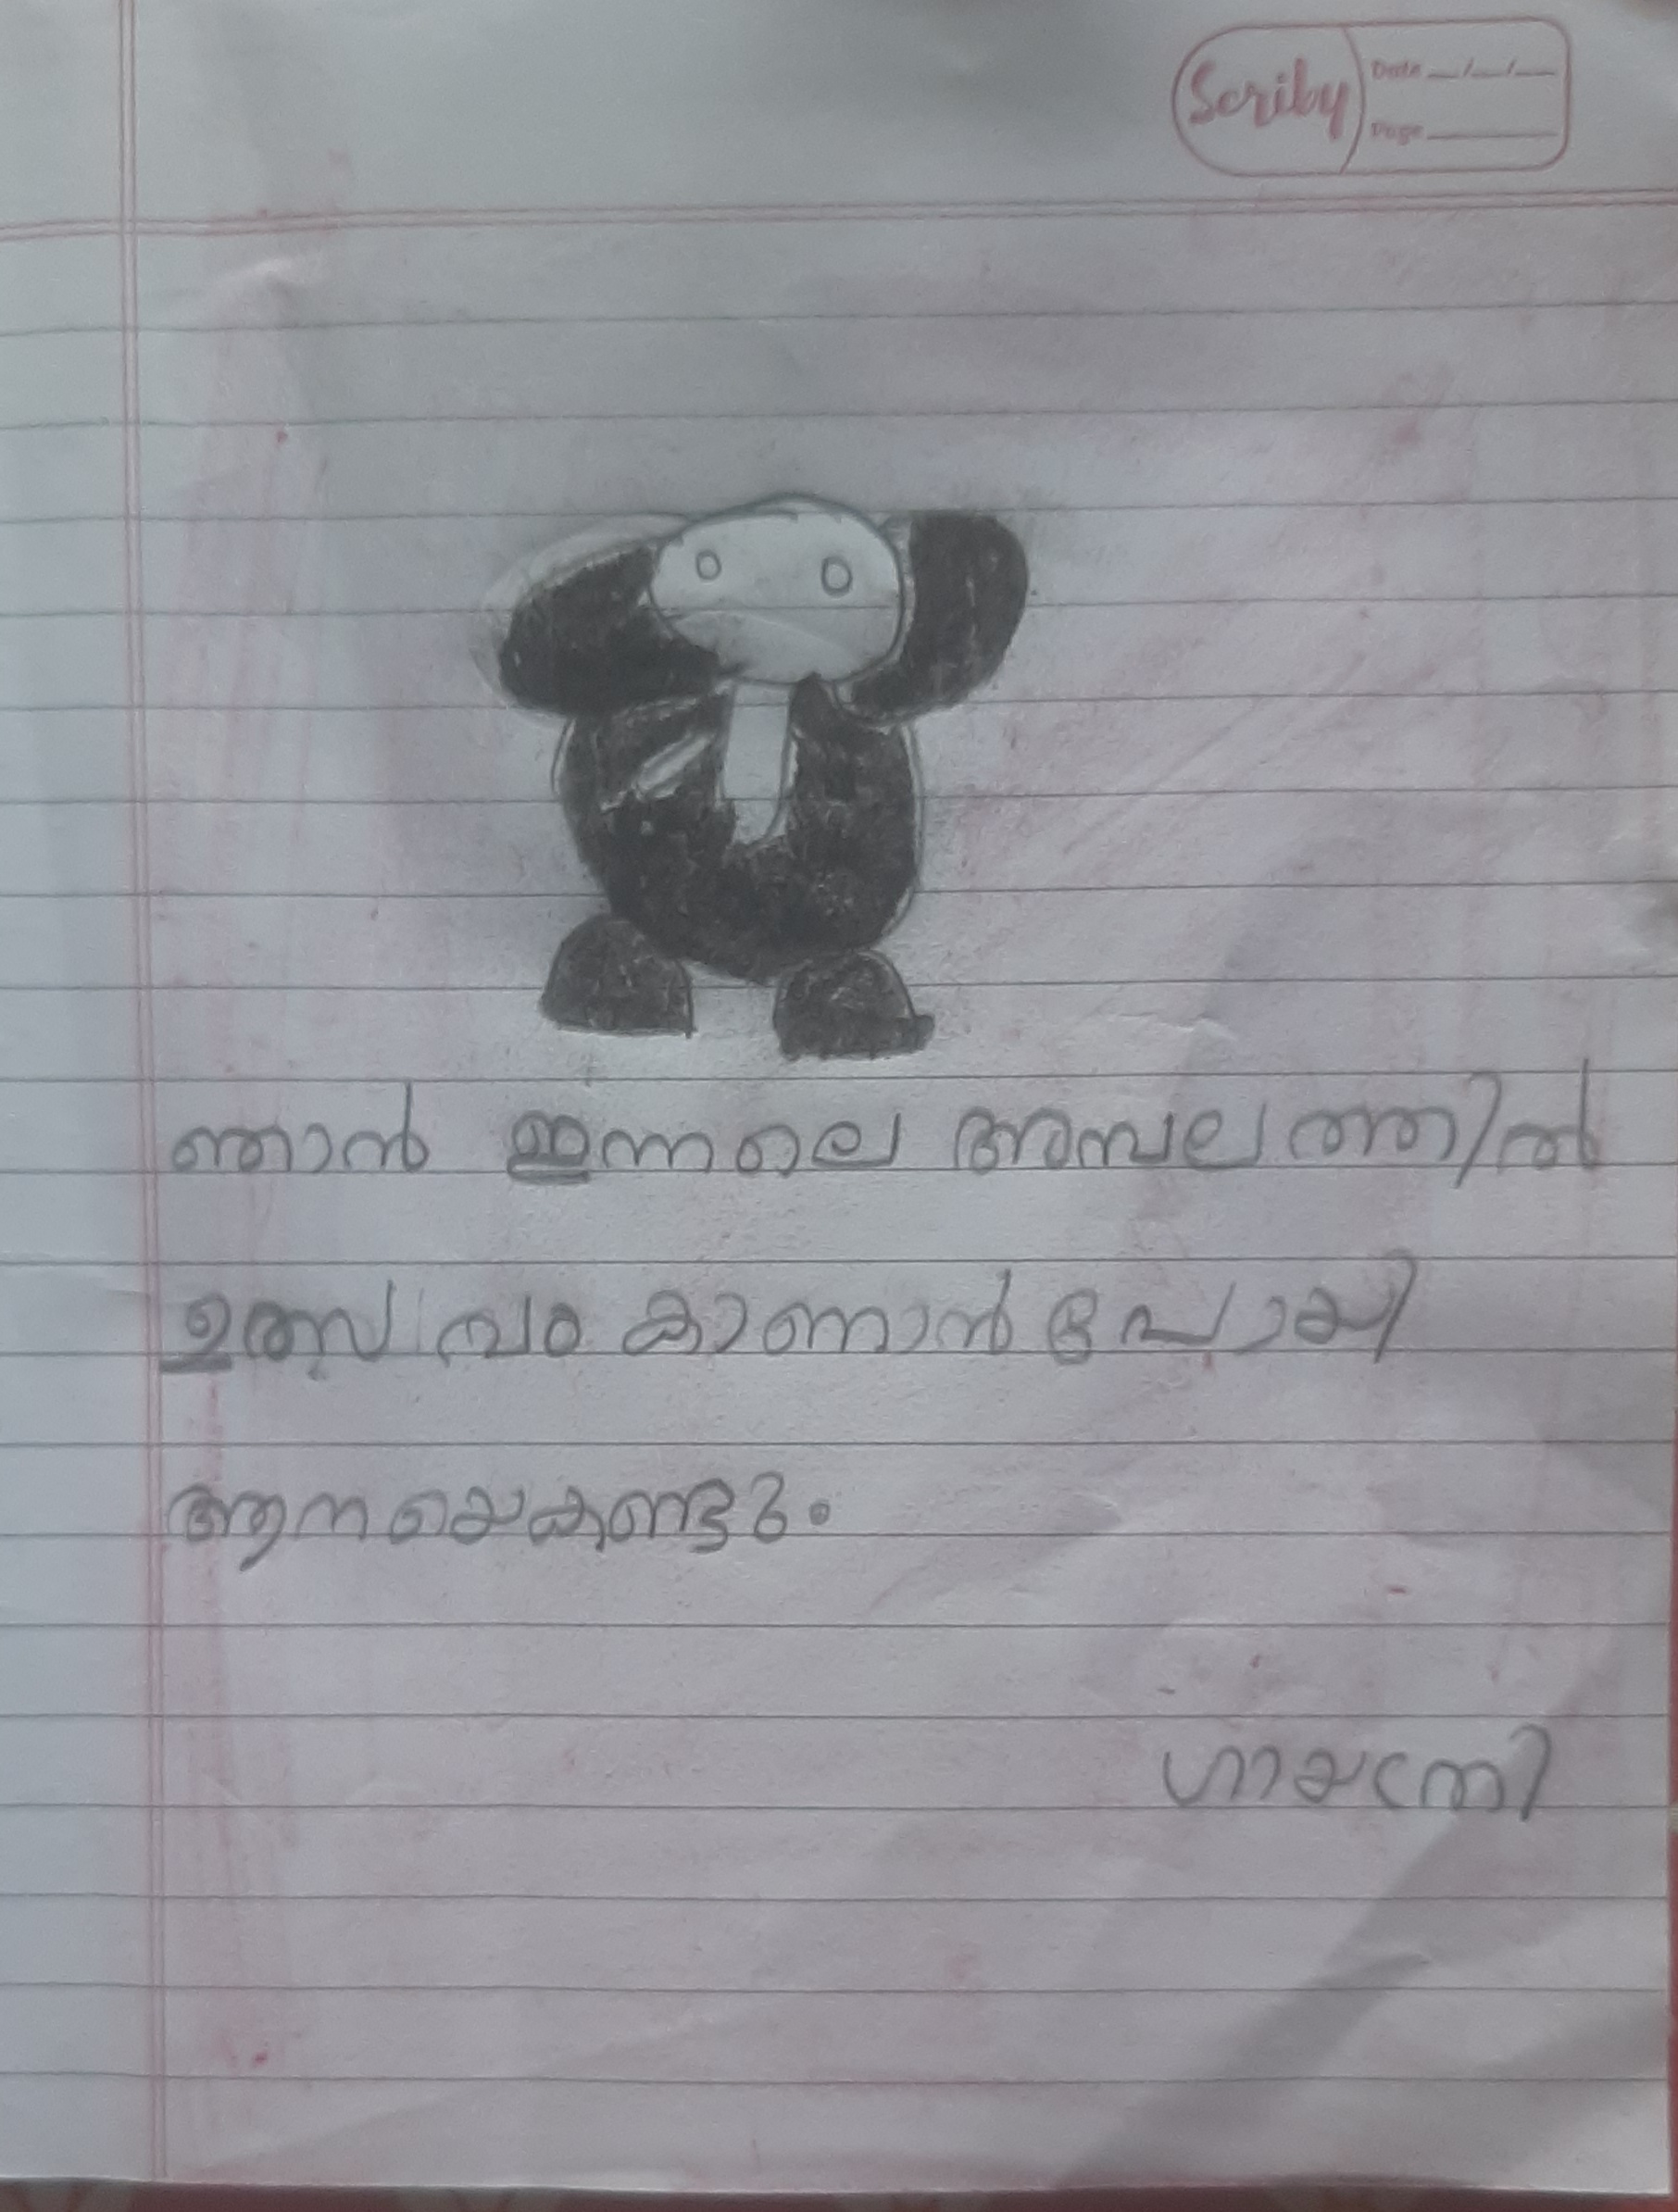 Scriby
Date __/__/__
Page ______
ഞാൻ ഇന്നലെ അമ്പലത്തിൽ
ഉത്സവം കാണാൻ പോയി
ആനയെകണ്ടു.
ഗായത്രി